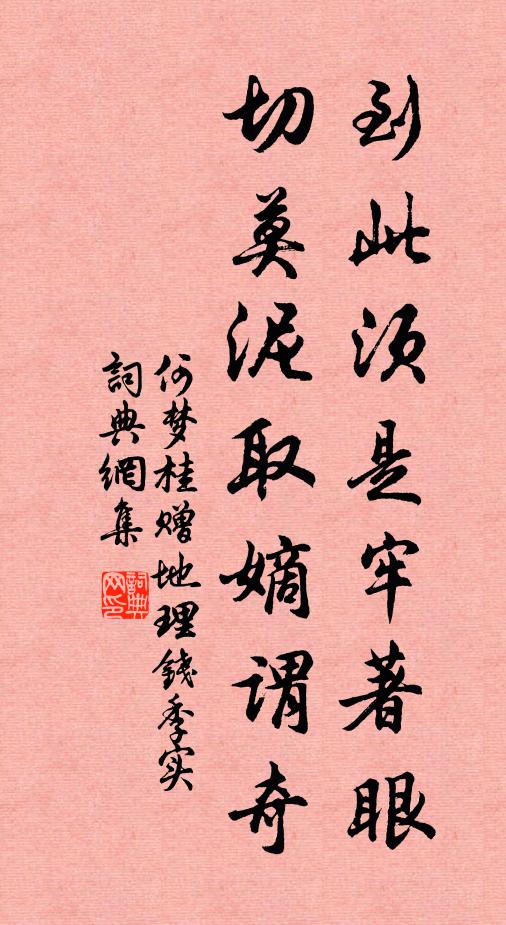 到此须是牢著眼
切莫泥取嫡谓奇
何梦桂赠地理錢季实
詞典網集
詞典网印